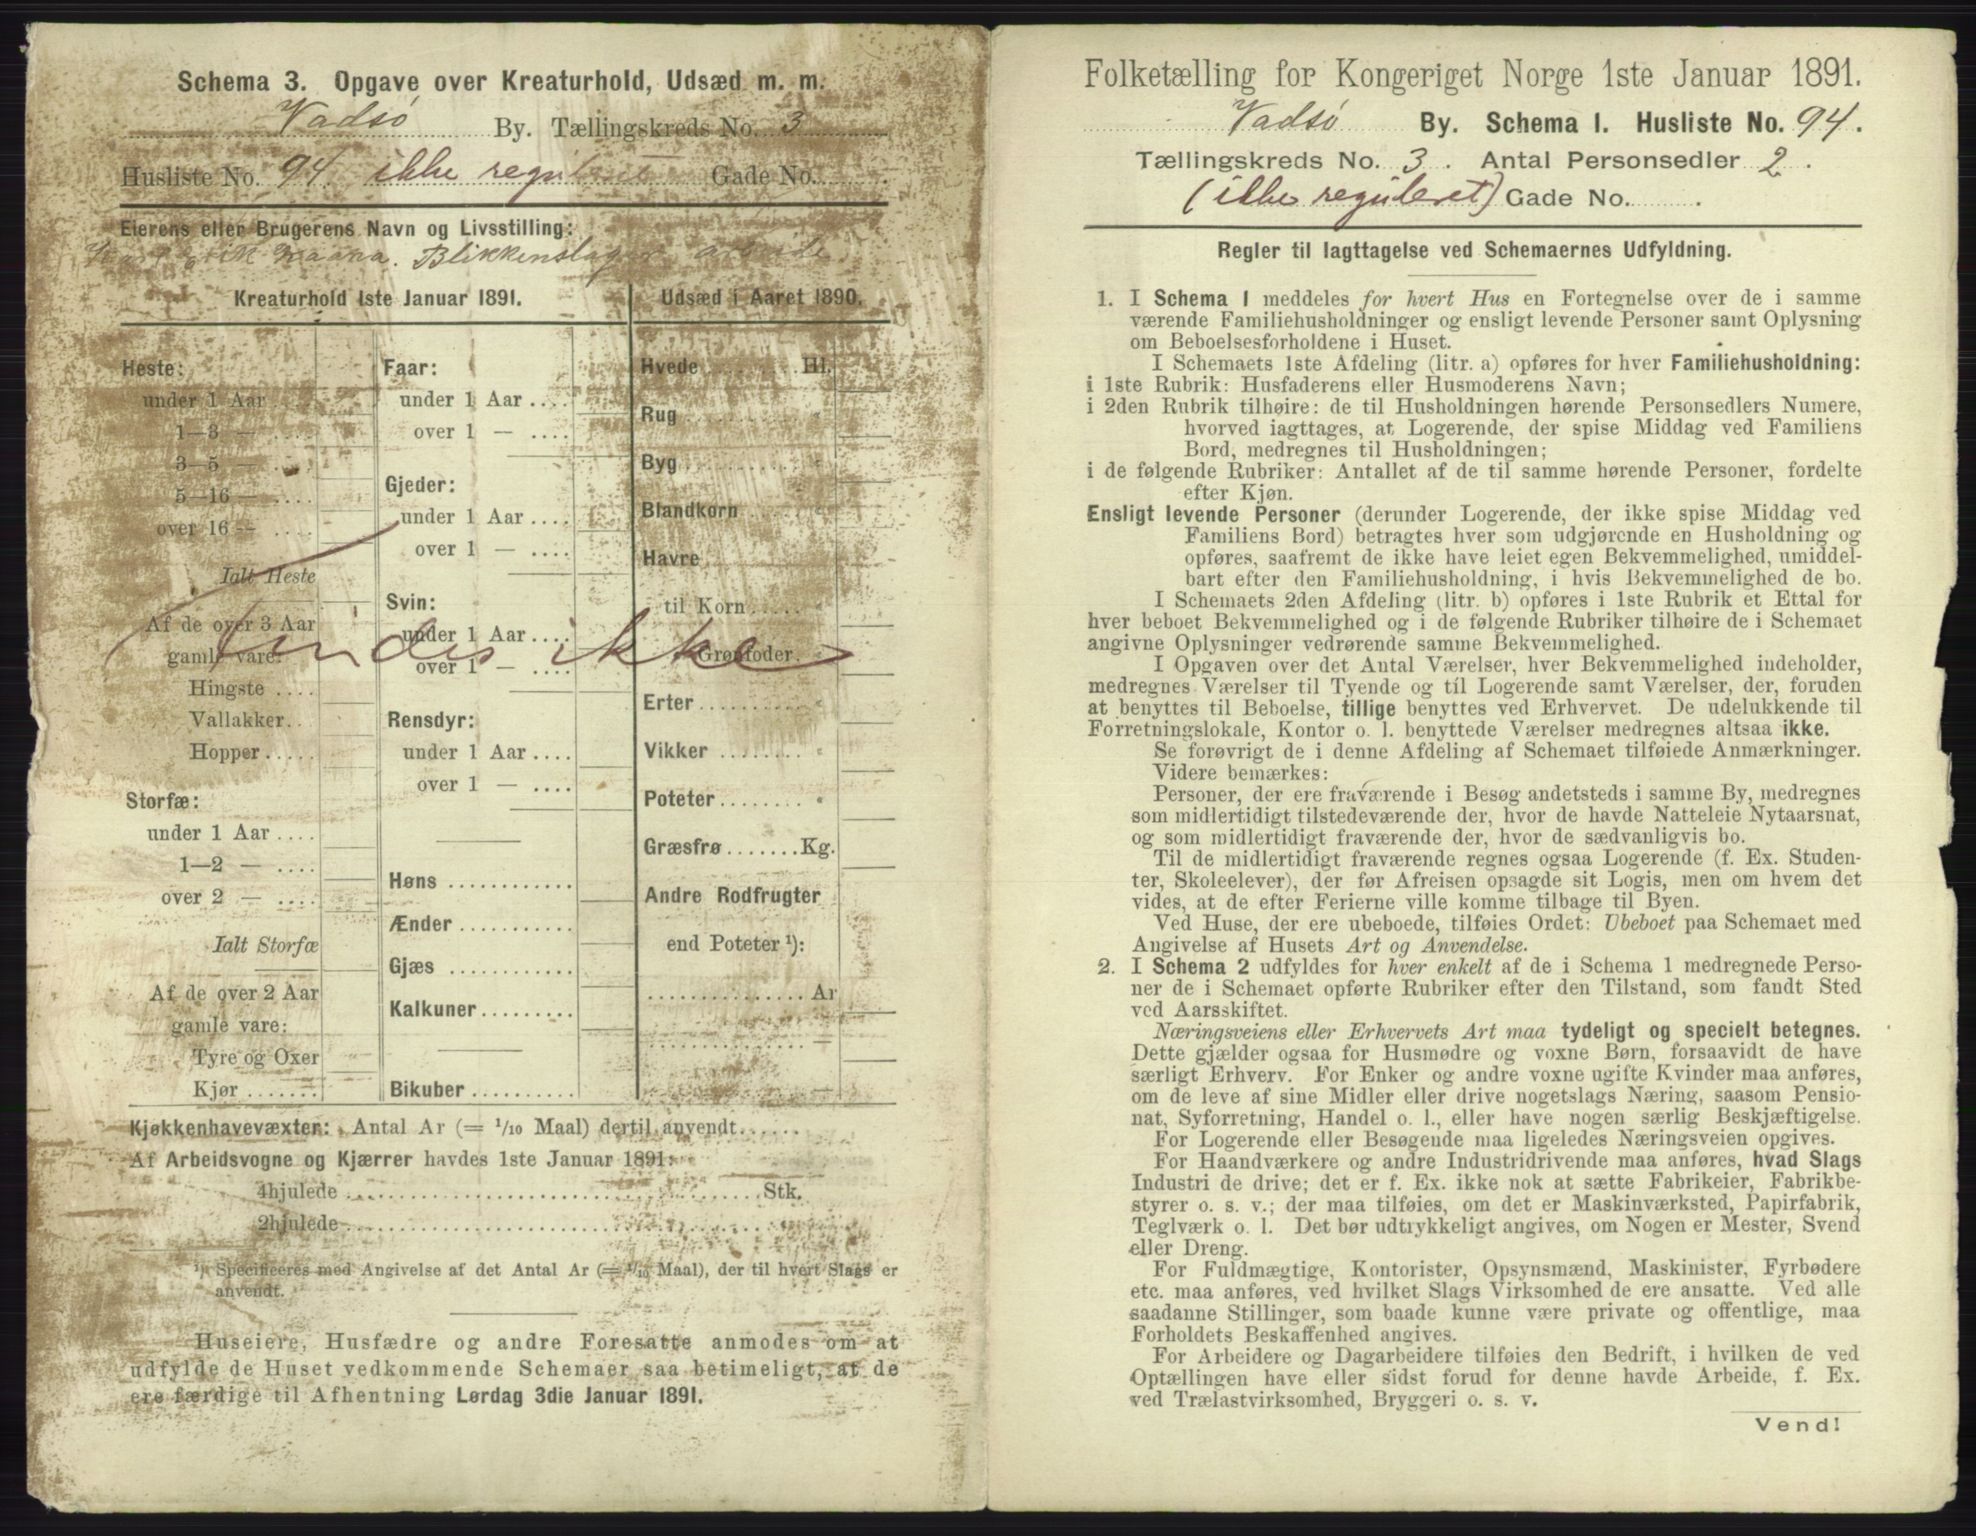 Schema 3. Opgave over Kreaturhold, Udsæd m. m.
Vadsö By. Tællingskreds No. 3
Husliste No. 94. ikke reguleret Gade No. .
Eierens eller Brugerens Navn og Livsstilling:
Blikkenslager arbeide
Kreaturhold 1ste Januar 1891.
Heste:
under 1 Aar ....
1—3 — ....
3—5 — ....
5—16 — ....
over 16 — ....
Ialt Heste
Af de over 3 Aar
gamle vare:
Hingste ....
Vallakker..
Hopper .....
Storfæ:
under 1 Aar ....
1—2 — ....
over 2 — ....
Ialt Storfæ
Af de over 2 Aar
gamle vare:
Tyre og Oxer
Kjør .......
Faar:
under 1 Aar ....
over 1 — ....
Gjeder:
under 1 Aar ....
over 1 — ....
Svin:
under 1 Aar ....
over 1 — ....
Rensdyr:
under 1 Aar ....
over 1 — ....
Høns ............
Ænder ...........
Gjæs ............
Kalkuner.........
Bikuber ..........
Findes ikke
Udsæd i Aaret 1890.
Hvede ........ Hl.
Rug ............ "
Byg ............ "
Blandkorn ...... "
Havre
til Korn ..... "
- Grønfoder. "
Erter .......... "
Vikker ......... "
Poteter ........ "
Græsfrø ....... Kg.
Andre Rodfrugter
end Poteter ¹):
.............. Ar
.............. —
—
Kjøkkenhavevæxter: Antal Ar (= 1/10 Maal) dertil anvendt......
Af Arbeidsvogne og Kjærrer havdes 1ste Januar 1891:
4hjulede .................... Stk.
2hjulede .................... -
¹) Specificeres med Angivelse af det Antal Ar (= 1/10 Maal), der til hvert Slags er
anvendt.
Huseiere, Husfædre og andre Foresatte anmodes om at
udfylde de Huset vedkommende Schemaer saa betimeligt, at de
ere færdige til Afhentning Lørdag 3die Januar 1891.
Folketælling for Kongeriget Norge 1ste Januar 1891.
Vadsö By. Schema I. Husliste No. 94.
Tællingskreds No. 3. Antal Personsedler 2.
(ikke reguleret) Gade No. .
Regler til Iagttagelse ved Schemaernes Udfyldning.
1. I Schema 1 meddeles for hvert Hus en Fortegnelse over de i samme
værende Familiehusholdninger og ensligt levende Personer samt Oplysning
om Beboelsesforholdene i Huset.
I Schemaets 1ste Afdeling (litr. a) opføres for hver Familiehusholdning:
i 1ste Rubrik: Husfaderens eller Husmoderens Navn;
i 2den Rubrik tilhøire: de til Husholdningen hørende Personsedlers Numere,
hvorved iagttages, at Logerende, der spise Middag ved Familiens
Bord, medregnes til Husholdningen;
i de følgende Rubriker: Antallet af de til samme hørende Personer, fordelte
efter Kjøn.
Ensligt levende Personer (derunder Logerende, der ikke spise Middag ved
Familiens Bord) betragtes hver som udgjørende en Husholdning og
opføres, saafremt de ikke have leiet egen Bekvemmelighed, umiddel-
bart efter den Familiehusholdning, i hvis Bekvemmelighed de bo.
I Schemaets 2den Afdeling (litr. b) opføres i 1ste Rubrik et Ettal for
hver beboet Bekvemmelighed og i de følgende Rubriker tilhøire de i Schemaet
angivne Oplysninger vedrørende samme Bekvemmelighed.
I Opgaven over det Antal Værelser, hver Bekvemmelighed indeholder,
medregnes Værelser til Tyende og til Logerende samt Værelser, der, foruden
at benyttes til Beboelse, tillige benyttes ved Erhvervet. De udelukkende til
Forretningslokale, Kontor o. l. benyttede Værelser medregnes altsaa ikke.
Se forøvrigt de i denne Afdeling af Schemaet tilføiede Anmærkninger.
Videre bemærkes:
Personer, der ere fraværende i Besøg andetsteds i samme By, medregnes
som midlertidigt tilstedeværende der, hvor de havde Natteleie Nytaarsnat,
og som midlertidigt fraværende der, hvor de sædvanligvis bo.
Til de midlertidigt fraværende regnes ogsaa Logerende (f. Ex. Studen-
ter, Skoleelever), der før Afreisen opsagde sit Logis, men om hvem det
vides, at de efter Ferierne ville komme tilbage til Byen.
Ved Huse, der ere ubeboede, tilføies Ordet: Ubeboet paa Schemaet med
Angivelse af Husets Art og Anvendelse.
2. I Schema 2 udfyldes for hver enkelt af de i Schema 1 medregnede Perso-
ner de i Schemaet opførte Rubriker efter den Tilstand, som fandt Sted
ved Aarsskiftet.
Næringsveiens eller Erhvervets Art maa tydeligt og specielt betegnes.
Dette gjælder ogsaa for Husmødre og voxne Børn, forsaavidt de have
særligt Erhverv. For Enker og andre voxne ugifte Kvinder maa anføres,
om de leve af sine Midler eller drive nogetslags Næring, saasom Pensio-
nat, Syforretning, Handel o. l., eller have nogen særlig Beskjæftigelse.
For Logerende eller Besøgende maa ligeledes Næringsveien opgives.
For Haandværkere og andre Industridrivende maa anføres, hvad Slags
Industri de drive; det er f. Ex. ikke nok at sætte Fabrikeier, Fabrikbe-
styrer o. s. v.; der maa tilføies, om det er Maskinværksted, Papirfabrik,
Teglværk o. l. Det bør udtrykkeligt angives, om Nogen er Mester, Svend
eller Dreng.
For Fuldmægtige, Kontorister, Opsynsmænd, Maskinister, Fyrbødere
etc. maa anføres, ved hvilket Slags Virksomhed de ere ansatte. Ved alle
saadanne Stillinger, som baade kunne være private og offentlige, maa
Forholdets Beskaffenhed angives.
For Arbeidere og Dagarbeidere tilføies den Bedrift, i hvilken de ved
Optællingen have eller sidst forud for denne havde Arbeide, f. Ex.
ved Trælastvirksomhed, Bryggeri o. s. v.
Vend!